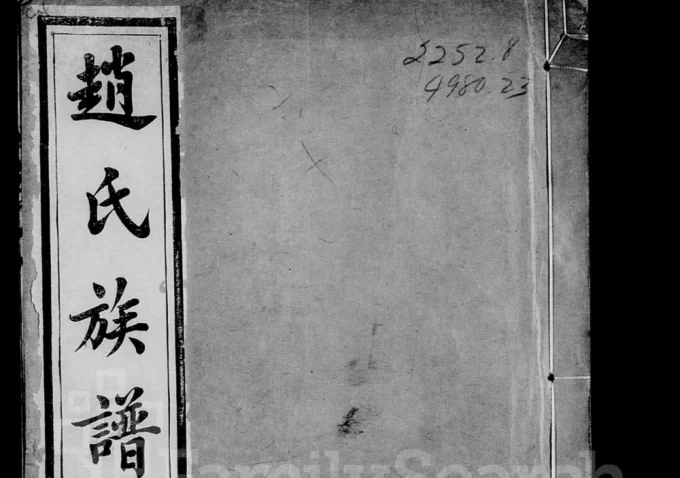 趙氏族譜
2252.8
4980.23
FamilySearch